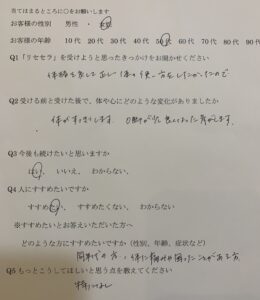 当てはまるところに〇をお願いします
お客様の性別　男性　・　女性
お客様の年齢　10代 20代 30代 40代 50代 60代 70代 80代 90代
Q1「リセセラ」を受けようと思ったきっかけをお聞かせください
体幹を戻して正しい体の使い方をしたかったので
Q2 受ける前と受けた後で、体や心にどのような変化がありましたか
体がすっきりします。
Q3 今後も続けたいと思いますか
はい、　いいえ、　わからない、
Q4 人にすすめたいですか
すすめたい、　すすめたくない、　わからない
※すすめたいとお答えいただいた方へ
どのような方にすすめたいですか（性別、年齢、症状など）
同年代の方、体に痛みや困ったことがある方
Q5 もっとこうしてほしいと思う点を教えてください
特になし